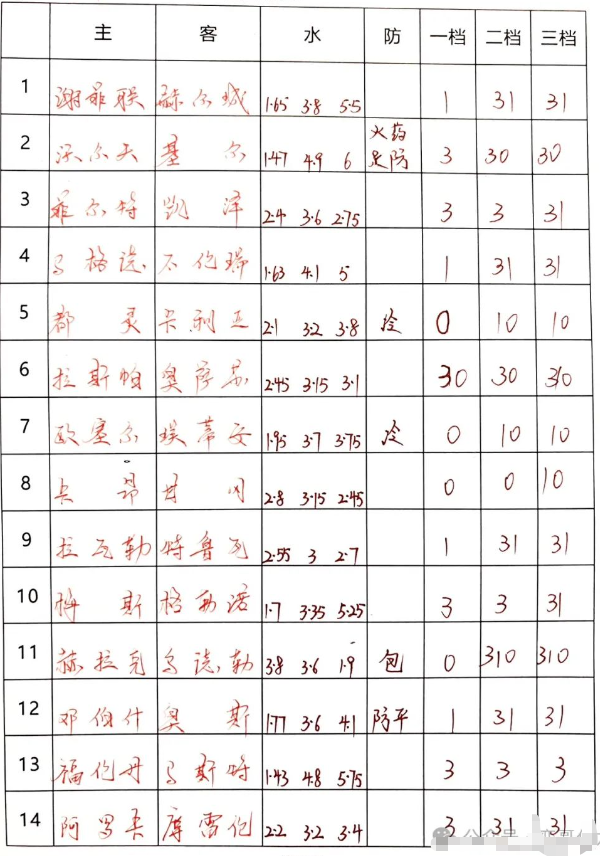 主 客 水 防 一档 二档 三档
1 谢菲联 赫尔城 1.65 3.8 5.5 1 31 31
2 沃尔夫 基尔 1.47 4.9 6 火药足防 3 30 30
3 菲尔特 凯泽 2.4 3.6 2.75 3 3 31
4 马格德 不伦瑞 1.63 4.1 5 1 31 31
5 都灵 卡利亚 2.1 3.2 3.8 冷 0 10 10
6 拉斯帕 奥萨苏 2.45 3.15 3.1 30 30 310
7 欧塞尔 埃蒂安 1.95 3.7 3.75 冷 0 10 10
8 卡昂 2.8 3.15 2.45 0 0 10
9 拉瓦勒 特鲁瓦 2.55 3 2.7 1 31 31
10 梅斯 格勒诺 1.7 3.35 5.25 3 3 31
11 赫拉克 乌德勒 3.8 3.6 1.9 包 0 310 310
12 邓伯什 奥斯 1.77 3.6 4.1 防平 1 31 31
13 福伦丹 马斯特 1.43 4.8 5.75 3 3 3
14 阿罗卡 摩雷伦 2.2 3.2 3.4 3 31 31
公众号